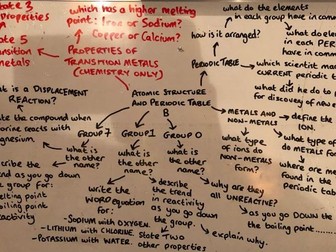 state 3
properties
of
State 5
transition
metals
which has a higher melting
point: Iron or Sodium?
Copper or Calcium?
PROPERTIES OF
TRANSITION METALS
(CHEMISTRY ONLY)
what do the elements
in each group have in comm
how is it arranged?
what do elem
in each PERI
have in comm
PERIODIC TABLE
which scientist ma
CURRENT periodic t
what did he do to p
for discovery of n
at is a DISPLACEMENT
REACTION?
ATOMIC STRUCTURE
AND PERIODIC TABLE
B
METALS AND
NON-METALS
define the
ION.
te the compound when
lorine reacts with
agnesium.
GROUP 7
GROUP 1
GROUP 0
what is
the other
name?
what is
the other
name?
what is
the other
name?
what type
of ions do
NON-METALS
form?
what type
do METALS
where are me
found in the
periodic tab
scribe the
end as you go down
e group for:
melting point
boiling point
reactivity
write the
WORD equation
for:
- SODIUM WITH OXYGEN.
- LITHIUM WITH CHLORINE.
- POTASSIUM WITH WATER.
describe
the trend
in reactivity
as you go
down the
group.
explain why.
State TWO
other properties
why are they
all UNREACTIVE?
as you go DOWN the
the boiling point......